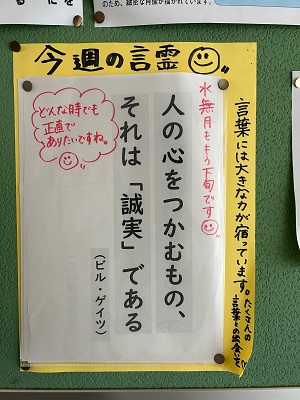 今週の言霊
言葉には大きな力が宿っています。たくさんの
言葉との出会いを
水無月ももう下旬です
人の心をつかむもの、
それは「誠実」である
(ビル・ゲイツ)
どんな時でも
正直で
ありたいですね。